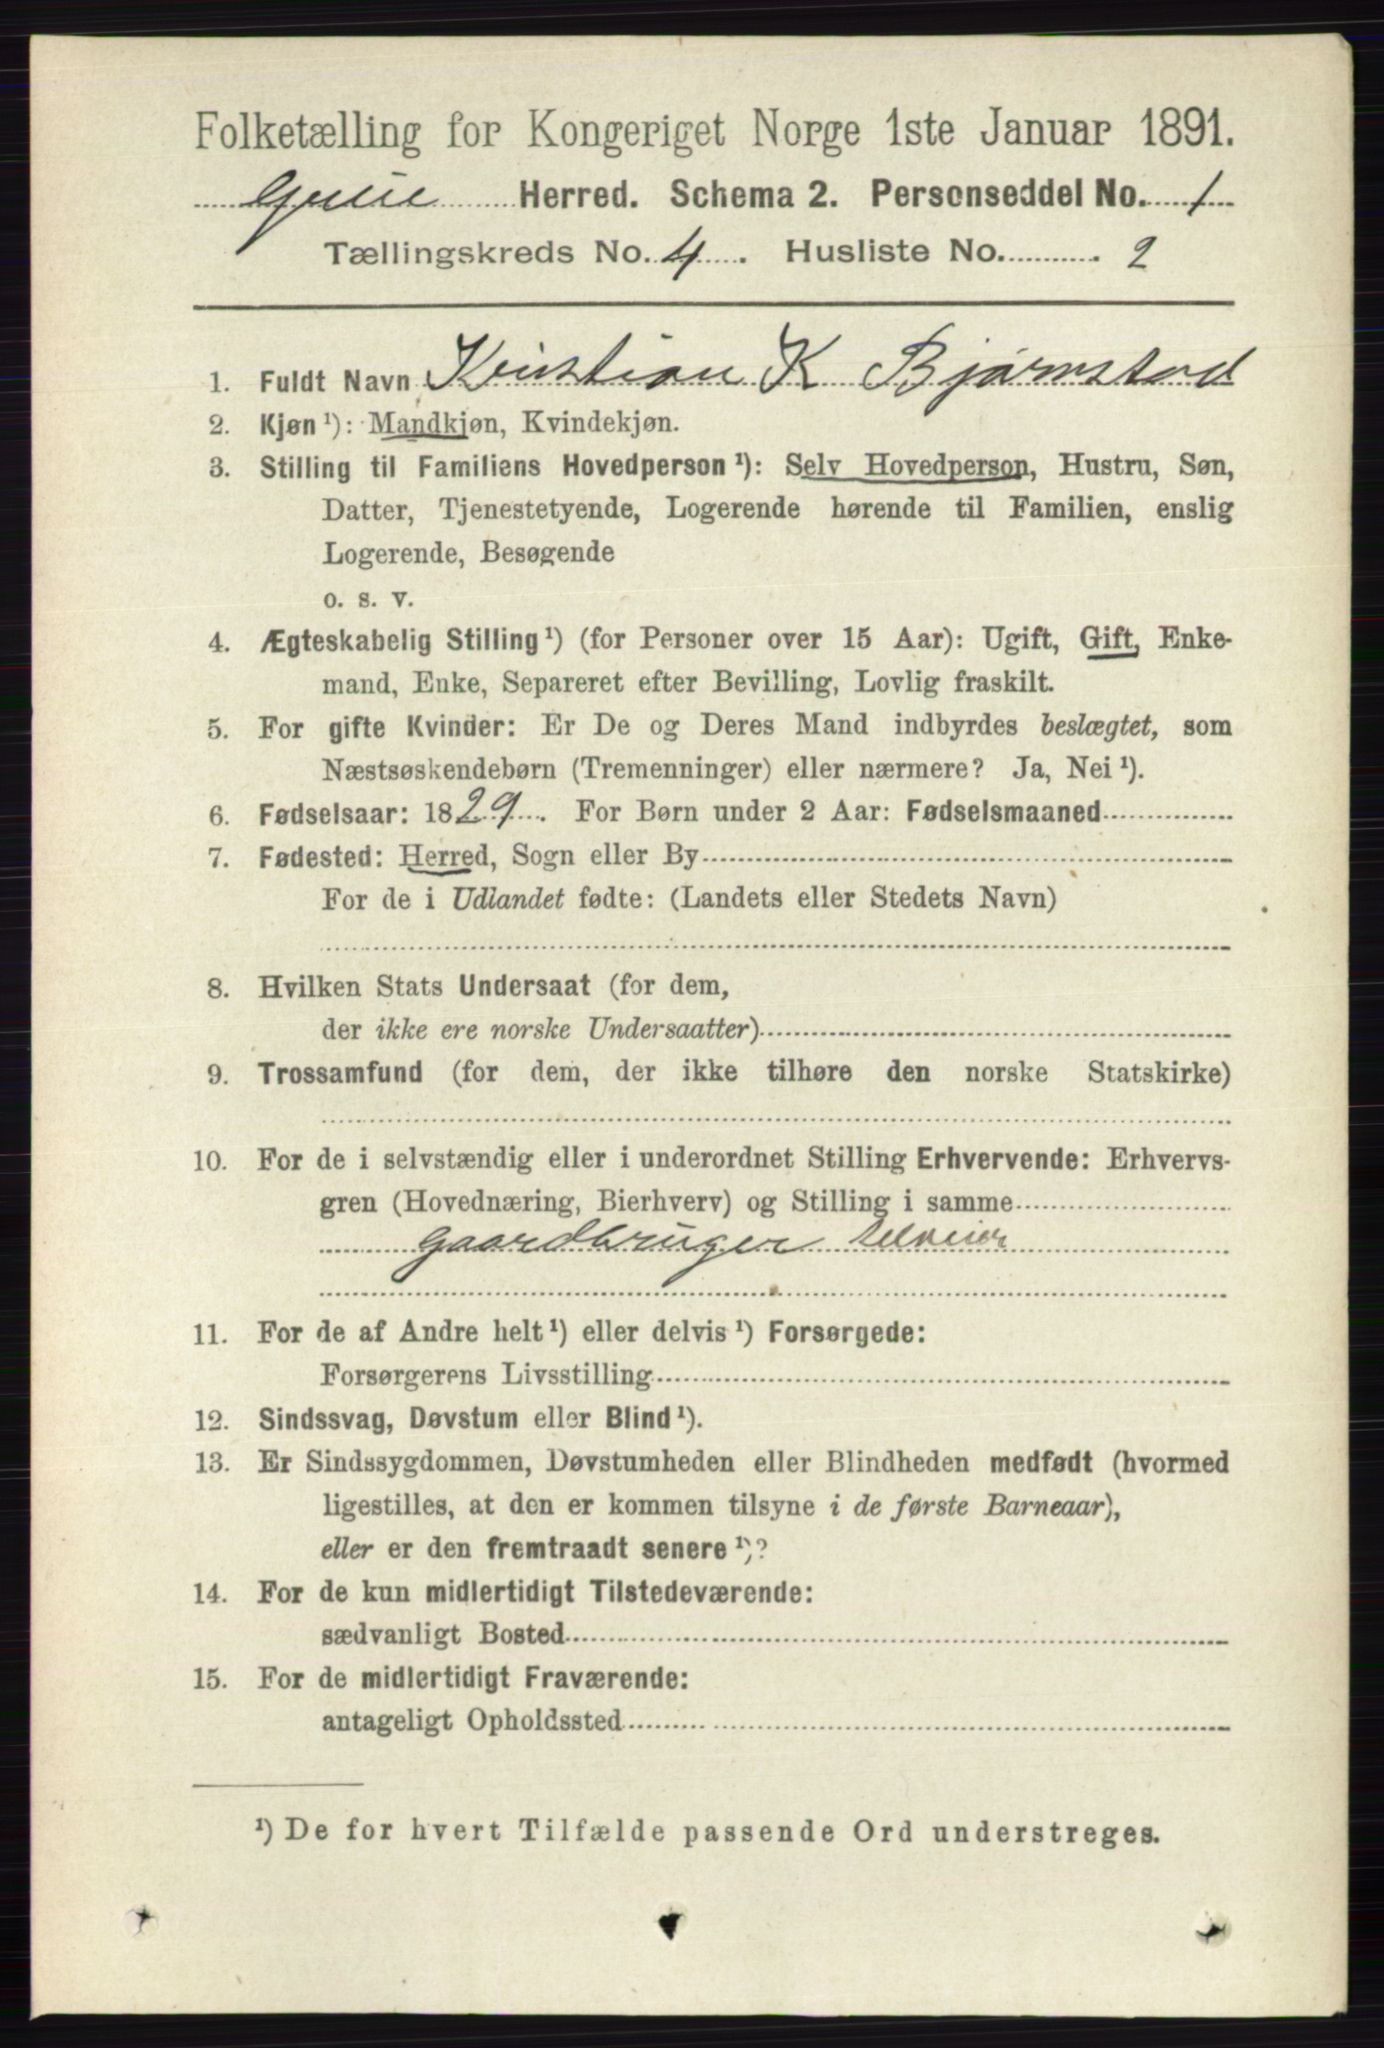 Folketælling for Kongeriget Norge 1ste Januar 1891.
Grue Herred. Schema 2. Personseddel No. 1
Tællingskreds No. 4. Husliste No. 2
1. Fuldt Navn Kristian K Bjørnstad
2. Kjøn ¹): Mandkjøn, Kvindekjøn.
3. Stilling til Familiens Hovedperson ¹): Selv Hovedperson, Hustru, Søn,
Datter, Tjenestetyende, Logerende hørende til Familien, enslig
Logerende, Besøgende
o. s. v.
4. Ægteskabelig Stilling ¹) (for Personer over 15 Aar): Ugift, Gift, Enke-
mand, Enke, Separeret efter Bevilling, Lovlig fraskilt.
5. For gifte Kvinder: Er De og Deres Mand indbyrdes beslægtet, som
Næstsøskendebørn (Tremenninger) eller nærmere? Ja, Nei ¹).
6. Fødselsaar: 1829. For Børn under 2 Aar: Fødselsmaaned
7. Fødested: Herred, Sogn eller By
For de i Udlandet fødte: (Landets eller Stedets Navn)
8. Hvilken Stats Undersaat (for dem,
der ikke ere norske Undersaatter)
9. Trossamfund (for dem, der ikke tilhøre den norske Statskirke)
10. For de i selvstændig eller i underordnet Stilling Erhvervende: Erhvervs-
gren (Hovednæring, Bierhverv) og Stilling i samme
Gaardbruger selveier
11. For de af Andre helt ¹) eller delvis ¹) Forsørgede:
Forsørgerens Livsstilling
12. Sindssvag, Døvstum eller Blind ¹).
13. Er Sindssygdommen, Døvstumheden eller Blindheden medfødt (hvormed
ligestilles, at den er kommen tilsyne i de første Barneaar),
eller er den fremtraadt senere ¹)?
14. For de kun midlertidigt Tilstedeværende:
sædvanligt Bosted
15. For de midlertidigt Fraværende:
antageligt Opholdssted
¹) De for hvert Tilfælde passende Ord understreges.